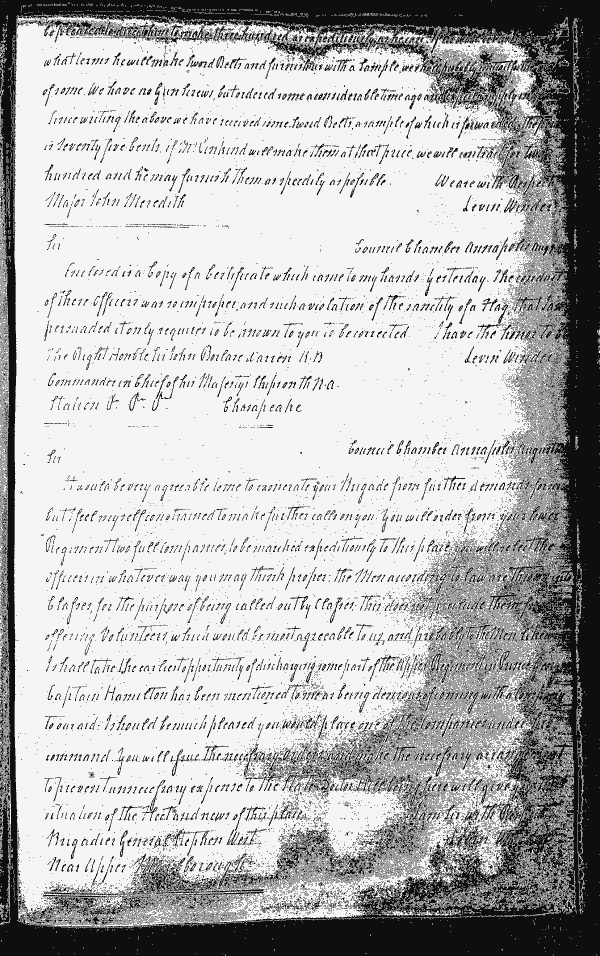 be pleased to direct him to make three hundred as expeditiously as he can.
what terms he will make Sword Belts and furnish us with a Sample, we shall
of some. We have no Gun Screws, but ordered some a considerable time ago
Since writing the above we have received some Sword Belts, a sample of which is forwarded, the price
is Seventy five Cents, if Mr. will make them at that price, we will contract for two
hundred and he may furnish them as speedily as possible. We are with Respect
Major John Meredith Levin Winder
Sir Council Chamber Annapolis August
Enclosed is a Copy of a Certificate which came to my hands yesterday. The conduct
of these Officers was so improper, and such a violation of the sanctity of a Flag, that I am
persuaded it only requires to be known to you to be corrected. I have the honor to be
The Right Honble Sir John Borlase Warren K.B Levin Winder
Commander in Chief of his Majestys Ships on the N.A.
Station &. &c. &c. Chesapeake
Sir Council Chamber Annapolis August
It would be very agreeable to me to exonerate your Brigade from further demands for
but I feel myself constrained to make further calls on you. You will order from your lower
Regiment two full companies, to be marched expeditiously to this place, you will select the
officers in whatever way you may think proper: the Men according to law are thrown into
Classes, for the purpose of being called out by Classes: this does not preclude them from
offering Volunteers, which would be most agreeable to us, and probably to the Men
I shall take the earliest opportunity of discharging some part of the Upper Regiment in Prince
Captain Hamilton has been mentioned to me as being desirous of coming with a company
to our aid: I should be much pleased you would place one of the Companies under his
command. You will issue the necessary orders and make the necessary arrangement
to prevent unnecessary expense to the State. being here will give you the
situation of the Fleet and news of this place. I am Sir with
Brigadier General Stephen West Levin
Near Upper Marlborough